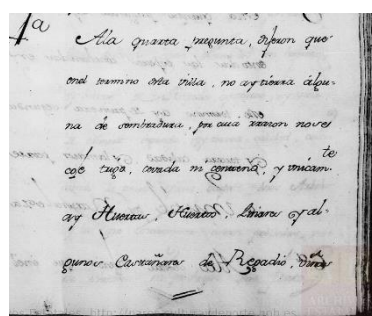 4ª
A la quarta pregunta, dijeron que
en el termino desta villa, no ay tierra algu-
na de sembradura, por cuia razon no se
coje trigo, cevada ni centeno, y unicamte
ay Huertas, Huertos Linares y al-
gunos Castañares de Regadio, viñas